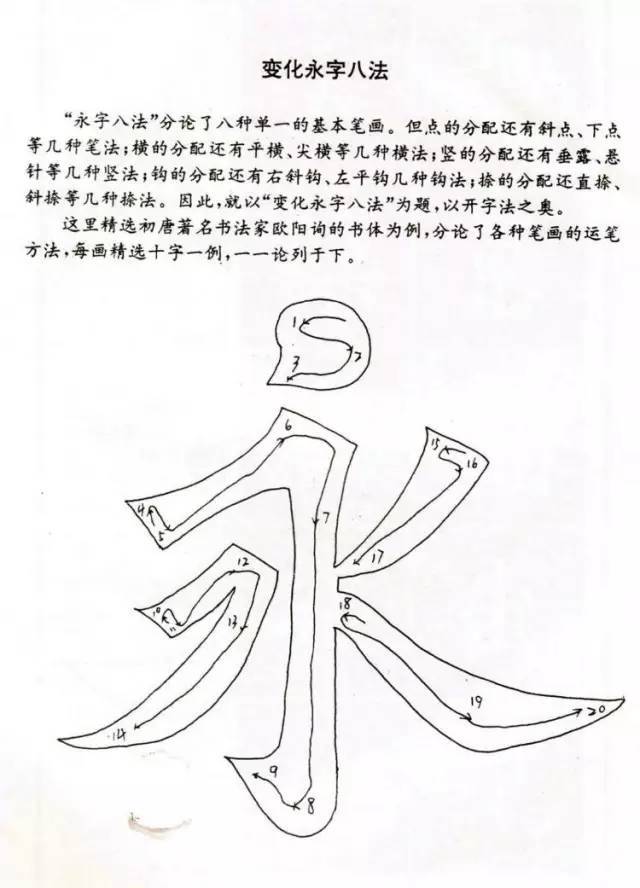 变化永字八法
“永字八法”分论了八种单一的基本笔画。但点的分配还有斜点、下点
等几种笔法;横的分配还有平横、尖横等几种横法;竖的分配还有垂露、悬
针等几种竖法;钩的分配还有右斜钩、左平钩几种钩法;捺的分配还直捺、
斜捺等几种捺法。因此,就以“变化永字八法”为题,以开字法之奥。
这里精选初唐著名书法家欧阳询的书体为例,分论了各种笔画的运笔
方法,每画精选十字一例,一一论列于下。
1
2
3
4
5
6
7
8
9
10
11
12
13
14
15
16
17
18
19
20